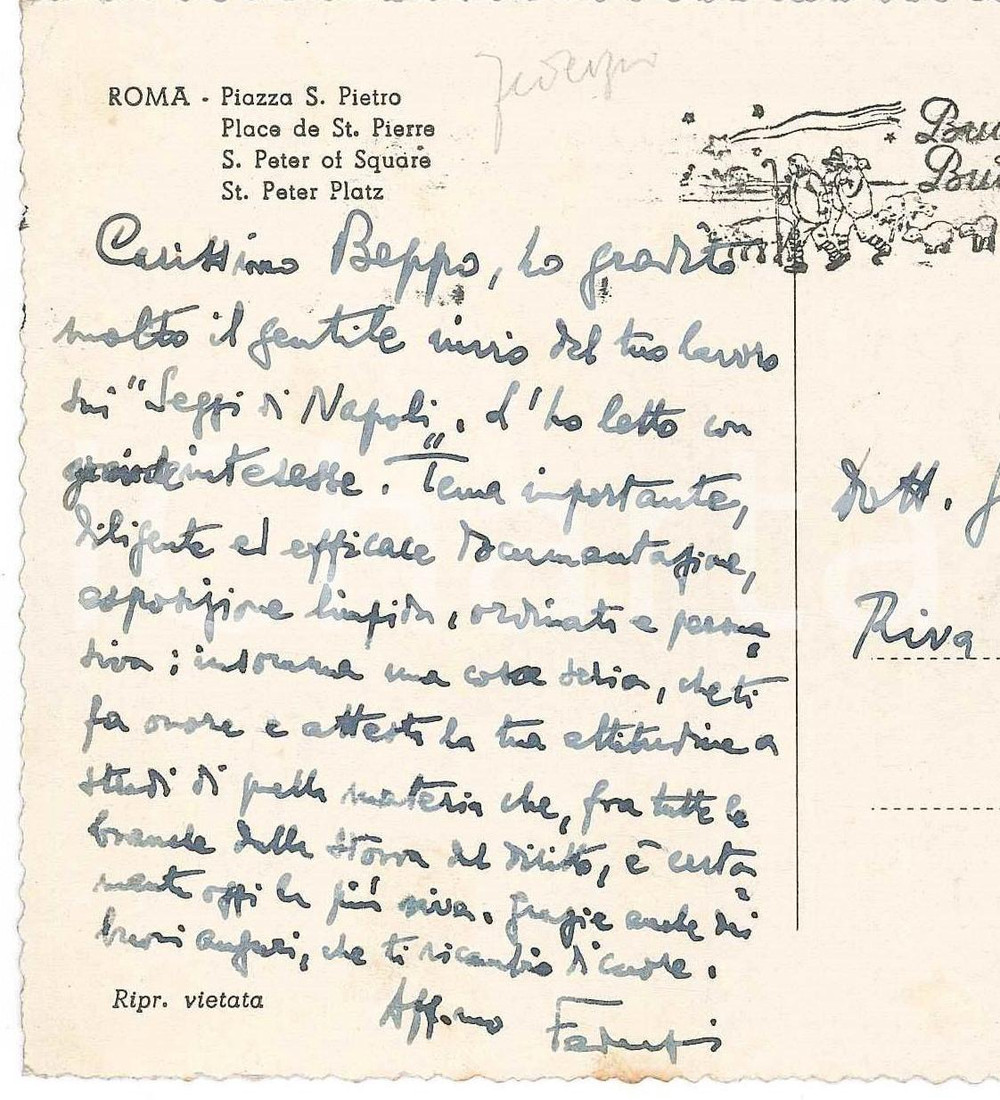 ROMA - Piazza S. Pietro
Place de St. Pierre
S. Peter of Square
St. Peter Platz
Carissimo Beppo, ho gradito
molto il gentile invio del tuo lavoro
sui "Seggi di Napoli". L'ho letto con
grande interesse. Tema importante,
diligente ed efficace documentazione,
esposizione limpida, ordinata e persua
siva; insomma una cosa seria, che ti
fa onore e attesta la tua attitudine a
studi di quella materia che, fra tutte le
branche della storia del diritto, è certa
mente oggi la più viva. Grazie anche dei
buoni auguri, che ti ricambio di cuore.
Aff.mo
Ripr. vietata
Dott. G
Riva